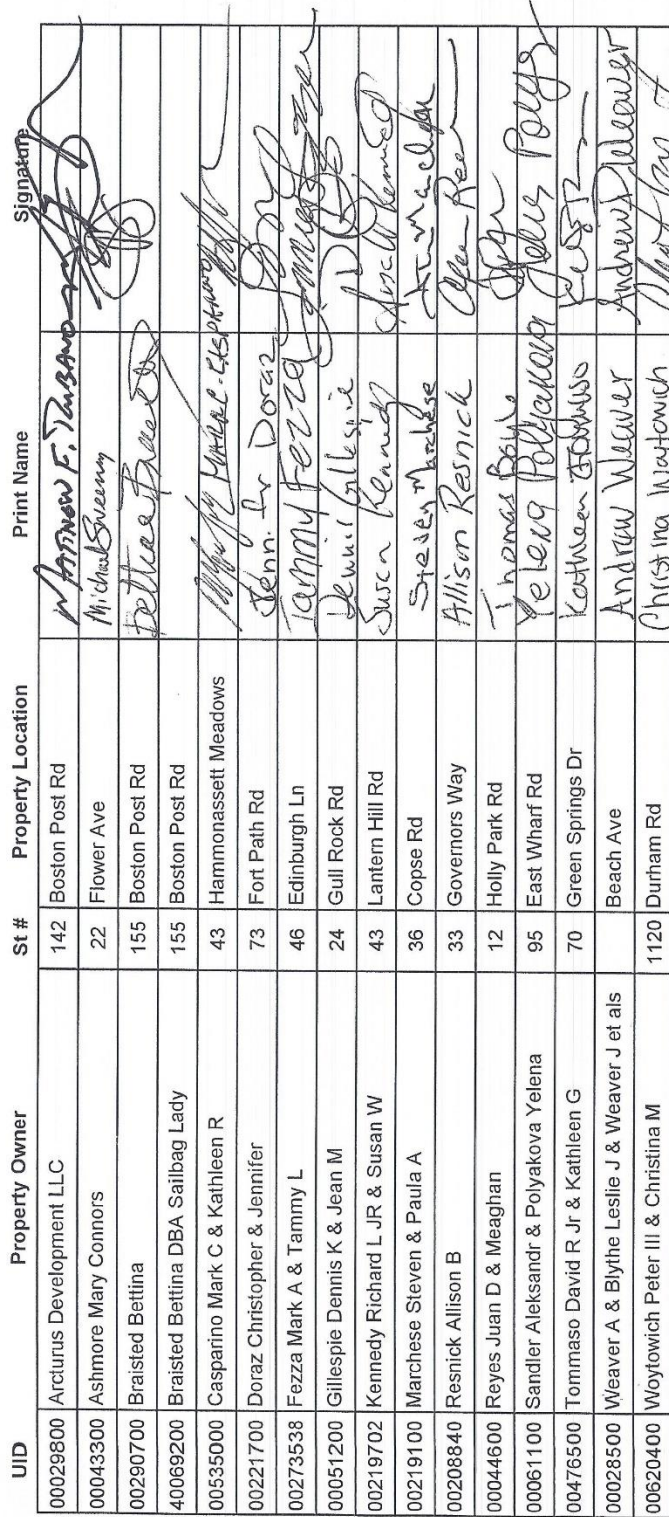 UID Property Owner St # Property Location Print Name Signature
00029800 Arcturus Development LLC 142 Boston Post Rd Matthew F.
00043300 Ashmore Mary Connors 22 Flower Ave Michael Sweeney
00290700 Braisted Bettina 155 Boston Post Rd
40069200 Braisted Bettina DBA Sailbag Lady 155 Boston Post Rd
00535000 Casparino Mark C & Kathleen R 43 Hammonassett Meadows
00221700 Doraz Christopher & Jennifer 73 Fort Path Rd Jennifer Doraz
00273538 Fezza Mark A & Tammy L 46 Edinburgh Ln Tammy Fezza
00051200 Gillespie Dennis K & Jean M 24 Gull Rock Rd Dennis Gillespie
00219702 Kennedy Richard L JR & Susan W 43 Lantern Hill Rd Susan Kennedy Susan W Kennedy
00219100 Marchese Steven & Paula A 36 Copse Rd Steven Marchese
00208840 Resnick Allison B 33 Governors Way Allison Resnick
00044600 Reyes Juan D & Meaghan 12 Holly Park Rd Thomas Boyle
00061100 Sandler Aleksandr & Polyakova Yelena 95 East Wharf Rd Yelena Polyakova
00476500 Tommaso David R Jr & Kathleen G 70 Green Springs Dr Kathleen Tommaso
00028500 Weaver A & Blythe Leslie J & Weaver J et als Beach Ave Andrew Weaver Andrew Weaver
00620400 Woytowich Peter III & Christina M 1120 Durham Rd Christina Woytowich